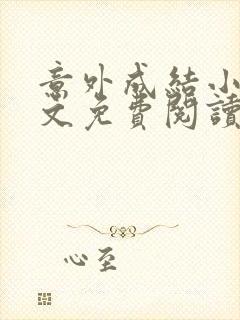 意外成結小
文免費閱讀
心至